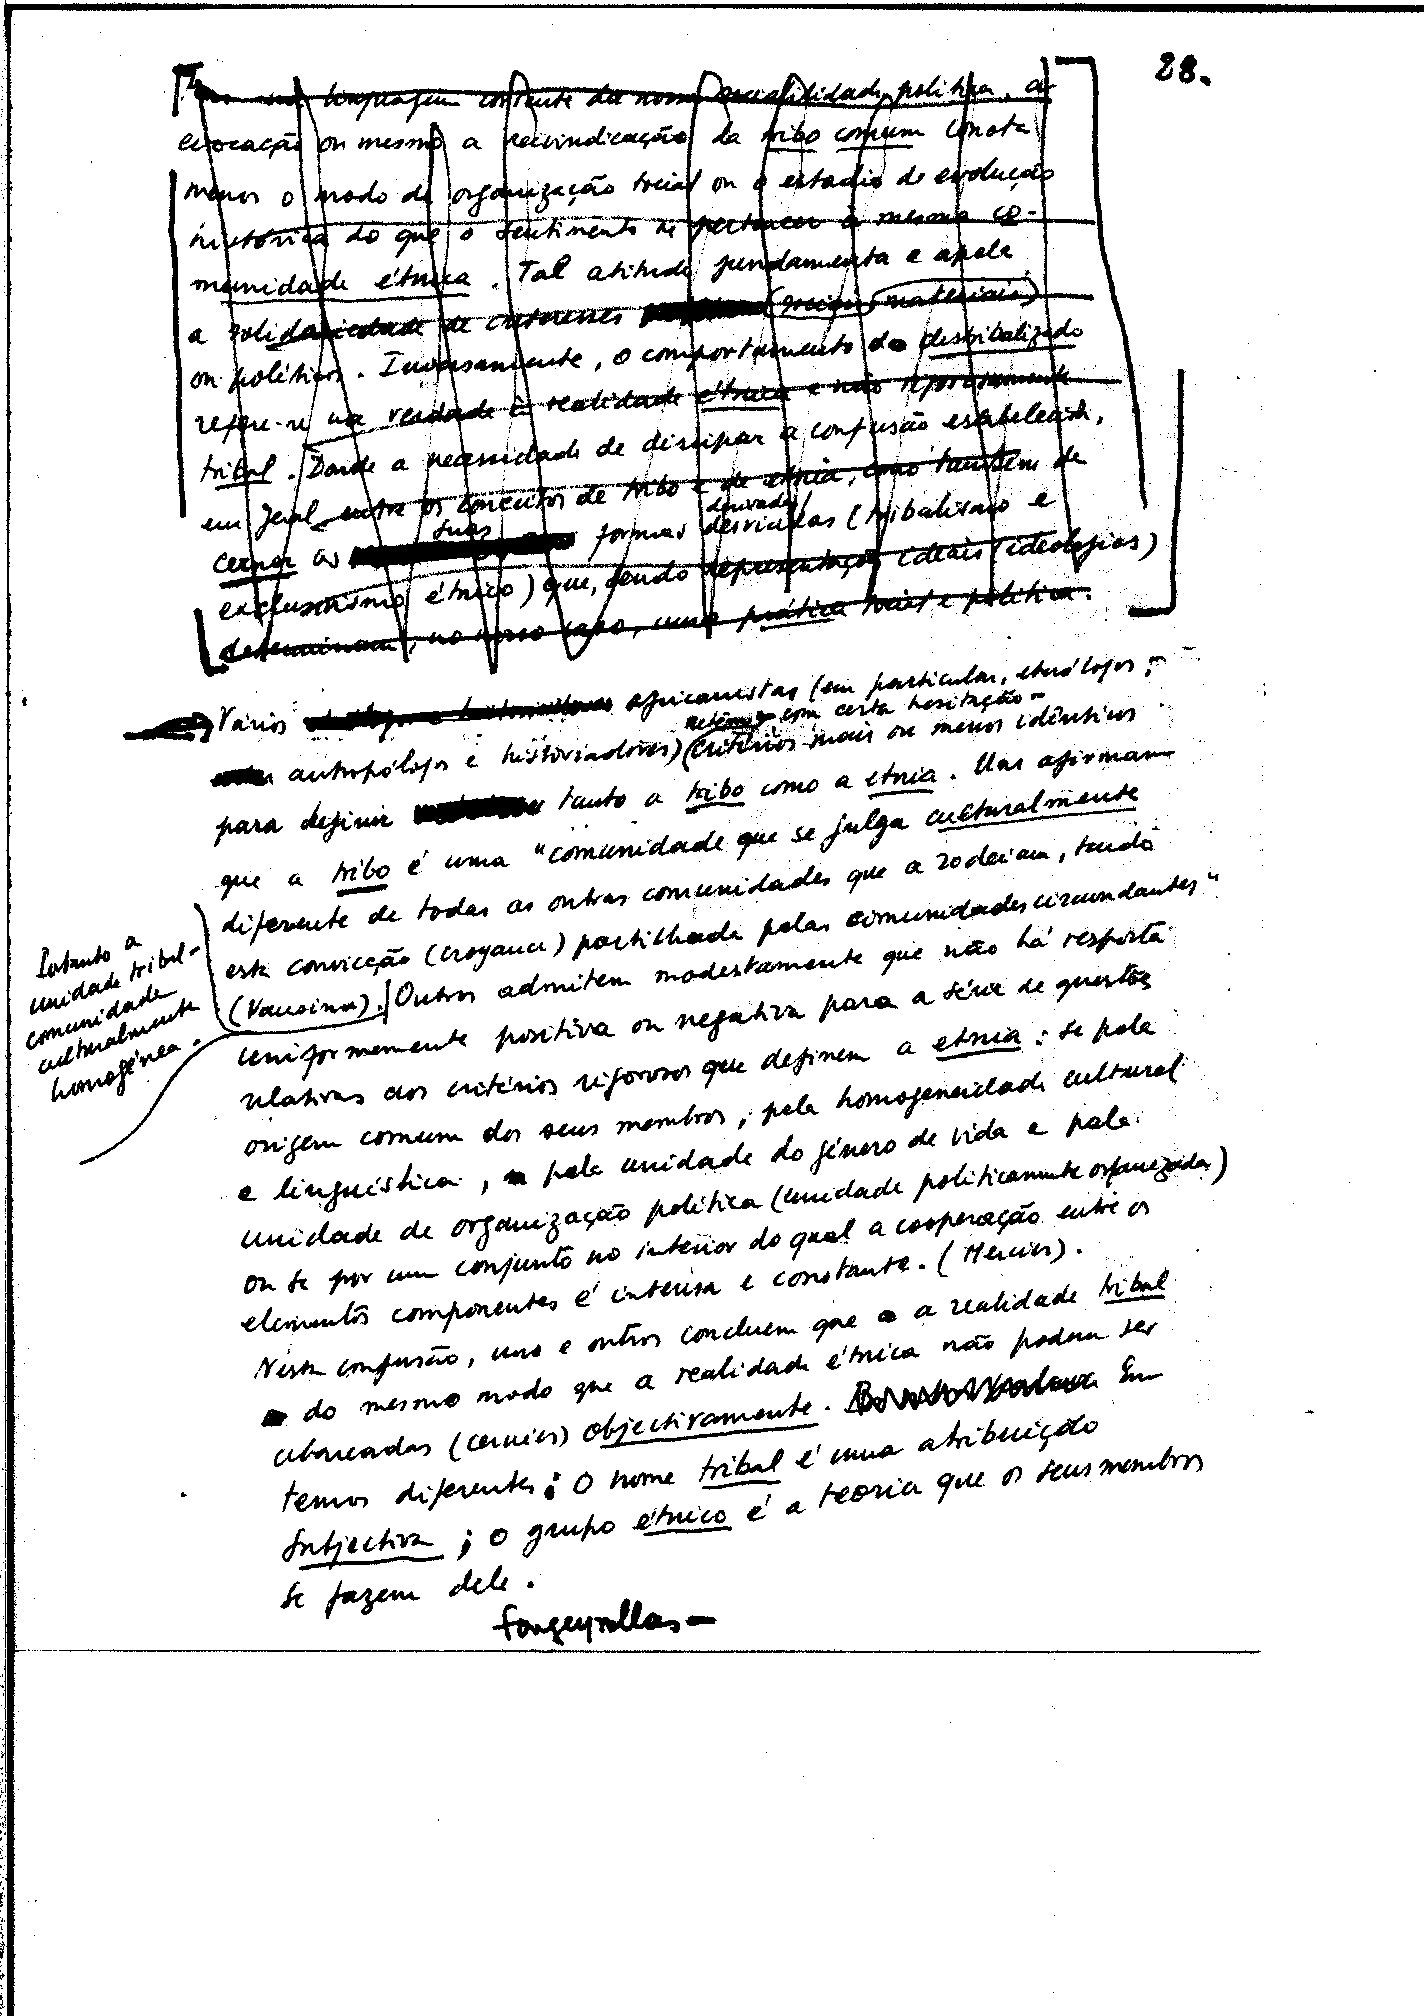 28.
linguagem corrente da nossa política, a
evocação ou mesmo a reivindicação da tribo comum conota
menos o modo de organização social ou o estadio de evolução
histórica do que o sentimento de pertencer à mesma co-
munidade étnica. Tal atitude fundamenta e apela
a solidariedade de interesses (sociais, materiais)
ou políticos. Inversamente, o comportamento do destribalizado
refere-se na verdade à realidade étnica e não rigorosamente
tribal. Donde a necessidade de dissipar a confusão estabelecida,
em geral entre os conceitos de tribo e de etnia, como também de
derivadas
suas
cernar as formas desviadas (tribalismo e
exclusivismo étnico) que, sendo representações ideais (ideologias)
determinam, no nosso caso, uma prática social e política.
Vários africanistas (em particular, etnólogos,
retêm com certa hesitação
antropólogos e historiadores) critérios mais ou menos idênticos
para definir tanto a tribo como a etnia. Uns afirmam
que a tribo é uma "comunidade que se julga culturalmente
diferente de todas as outras comunidades que a rodeiam, sendo
esta convicção (croyance) partilhada pelas comunidades circundantes"
(Vansina). Outros admitem modestamente que não há resposta
Portanto a
unidade tribal -
comunidade
culturalmente
homogénea.
uniformemente positiva ou negativa para a série de questões
relativas aos critérios rigorosos que definem a etnia: se pela
origem comum dos seus membros, pela homogeneidade cultural
e linguística, pela unidade do género de vida e pela
unidade de organização política (unidade politicamente organizada)
ou se por um conjunto no interior do qual a cooperação entre os
elementos componentes é intensa e constante. (Mercier).
Nesta confusão, uns e outros concluem que a realidade tribal
do mesmo modo que a realidade étnica não podem ser
abarcadas (cernées) objectivamente. Em
temos diferentes: O nome tribal é uma atribuição
subjectiva; o grupo étnico é a teoria que os seus membros
se fazem dele.
Fougeyrollas -